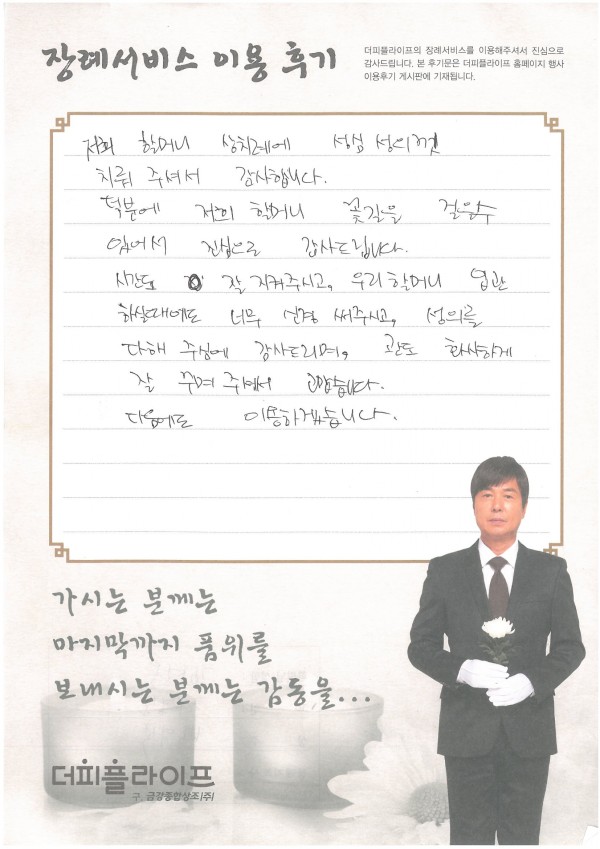 장례서비스 이용 후기
더피플라이프의 장례서비스를 이용해주셔서 진심으로
감사드립니다. 본 후기문은 더피플라이프 홈페이지 행사
이용후기 게시판에 기재됩니다.
저희 할머니 상치례에 성심 성의껏
치뤄 주셔서 감사합니다.
덕분에 저희 할머니 꽃길을 걸을수
있어서 진심으로 감사드립니다.
시간도 잘 지켜주시고, 우리 할머니 입관
하실때에도 너무 신경 써주시고, 성의를
다해 주심에 감사드리며, 관도 화사하게
잘 꾸며 주셔서 고맙습니다.
다음에도 이용하겠습니다.
가시는 분께는
마지막까지 품위를
보내시는 분께는 감동을...
더피플라이프
구. 금강종합상조(주)